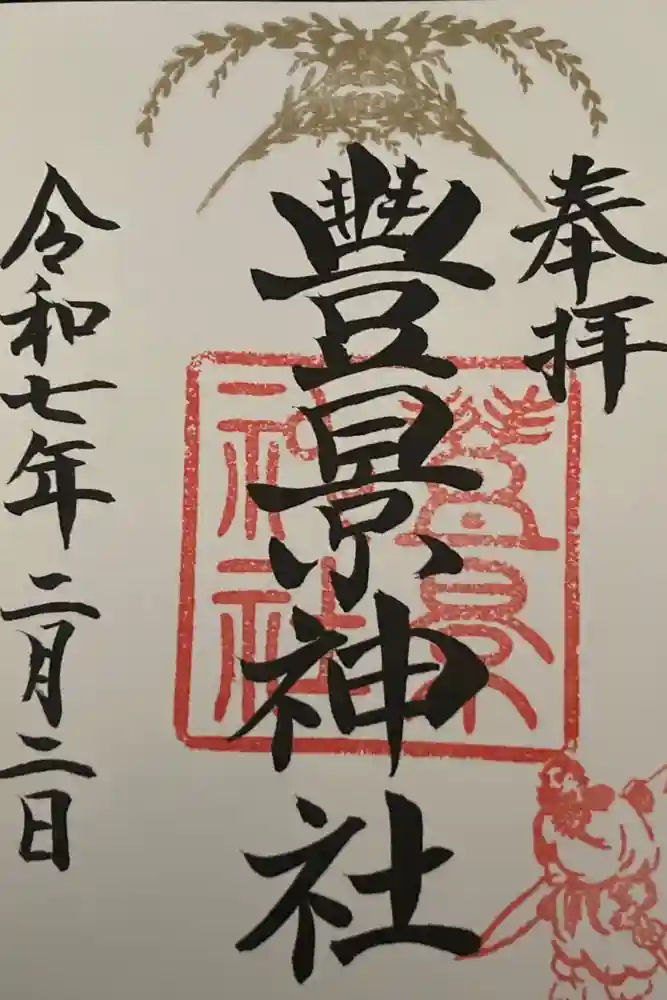 奉拝
豊景神社
豊景神社
令和七年二月二日